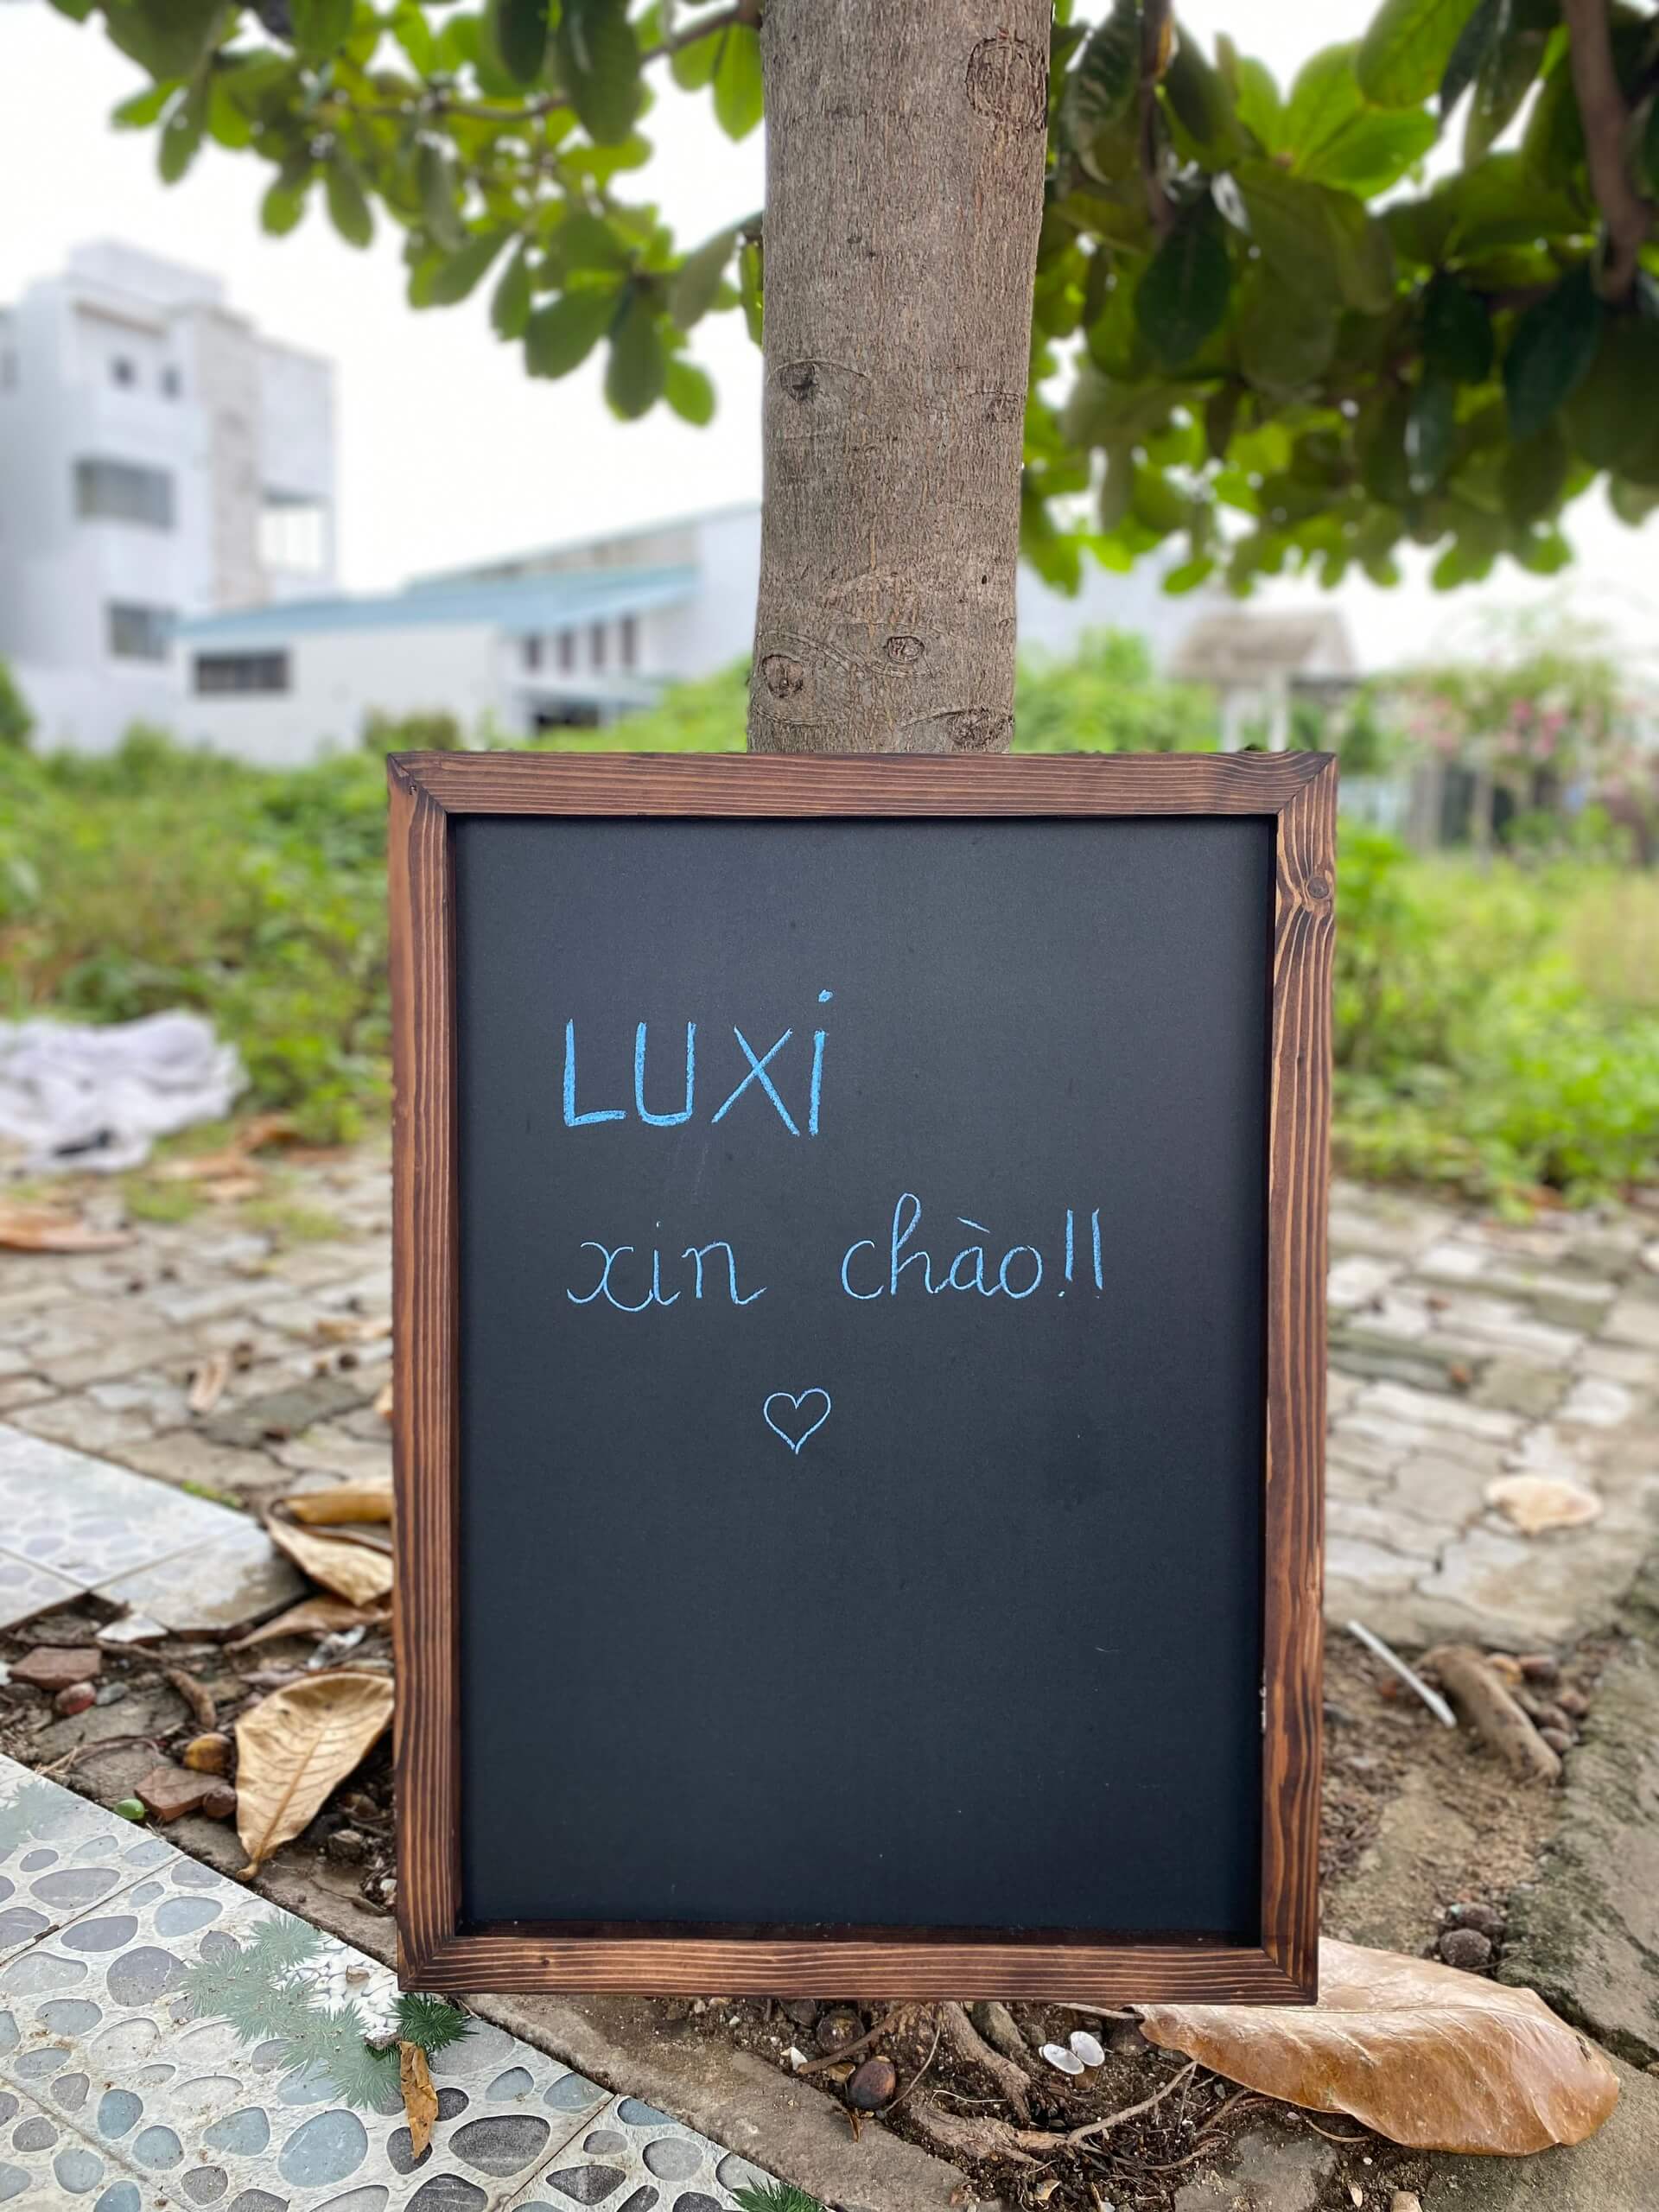 LUXi
xin chào!!